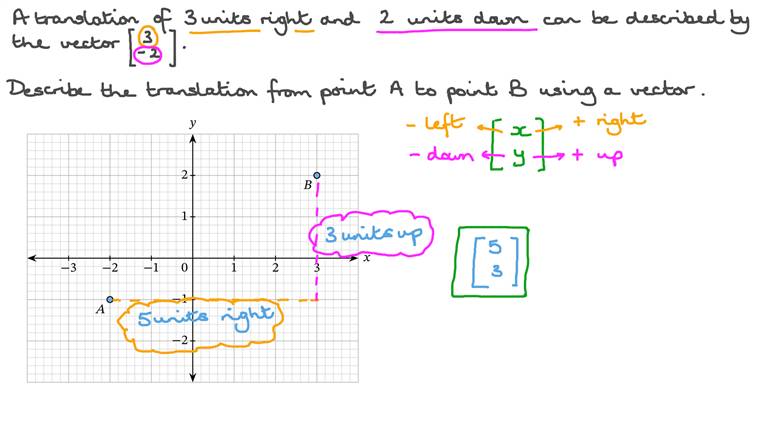 A translation of 3 units right and 2 units down can be described by
the vector [3 -2].
Describe the translation from point A to point B using a vector.
- left [x + right
- down y] + up
y
2
B
1
3 units up
-3 -2 -1 0 1 2 3 x
[5
3]
-1
A
5 units right
-2